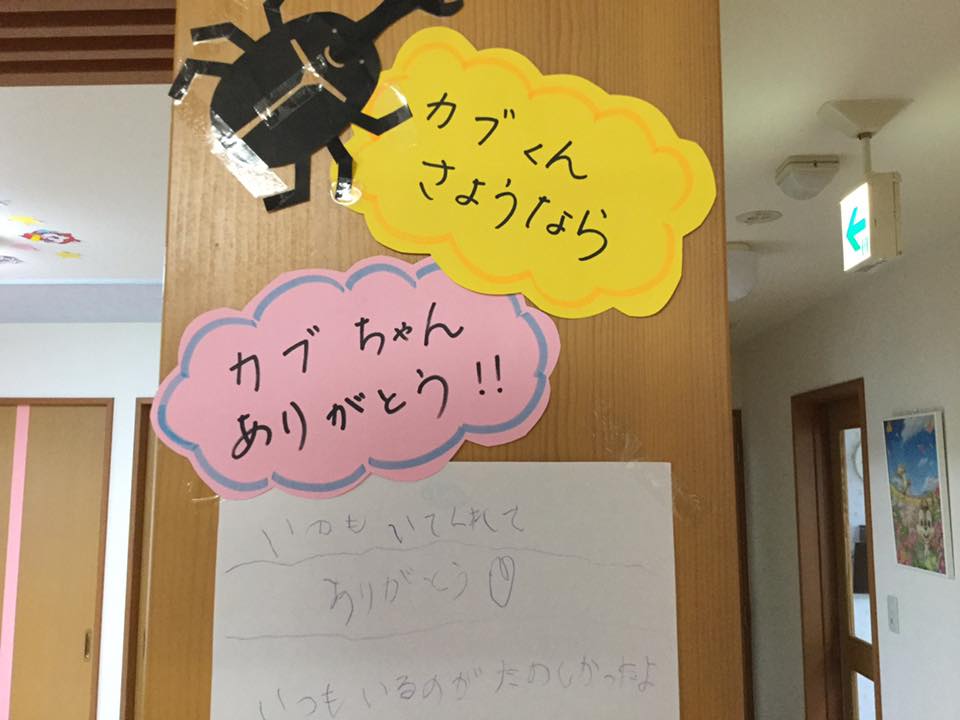 カブくん
さようなら
カブちゃん
ありがとう!!
いつもいてくれて
ありがとう
いつもいるのがたのしかったよ